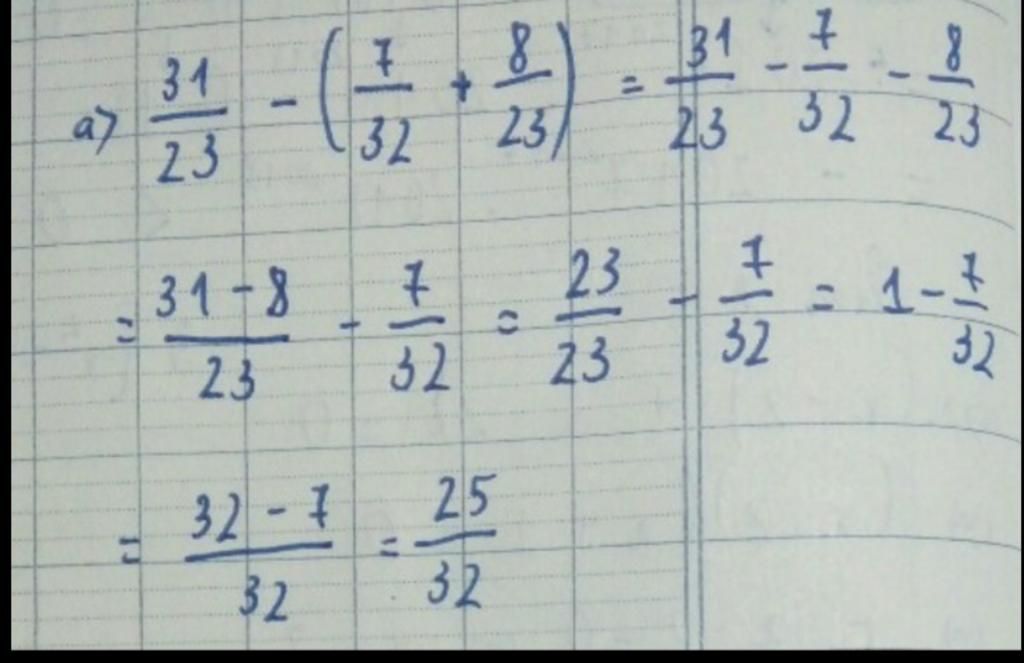 a) 31/23 - (7/32 + 8/23) = 31/23 - 7/32 - 8/23
= 31-8/23 - 7/32 = 23/23 - 7/32 = 1 - 7/32
= 32-7/32 = 25/32